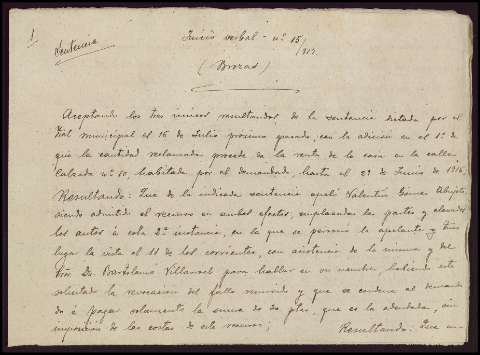 1
Sentencia
Juicio verbal - nº 15/917
(Brozas)
Aceptando los tres únicos resultandos de la sentencia dictada por el
Tral municipal el 16 de Julio próximo pasado, con la adición en el 1º de
que la cantidad reclamada procede de la renta de la casa en la calle
Calzada nº 50, habitada por el demandado hasta el 29 de Junio de 1916,
Resultando: Que de la indicada sentencia apeló Valentín Gómez
siendo admitido el recurso en ambos efectos, emplazadas las partes y elevados
los autos a esta 2ª instancia, en la que se personó la apelante y tuvo
lugar la vista el 11 de los corrientes, con asistencia de la misma y del
Bartolomé Villarroel para hablar en su nombre, habiendo este
solicitado la revocación del fallo recurrido y que se condene al demanda
do á pagar solamente la suma de ptas, que es la adeudada, sin
imposición de las costas de este recurso;
Resultando: Que en